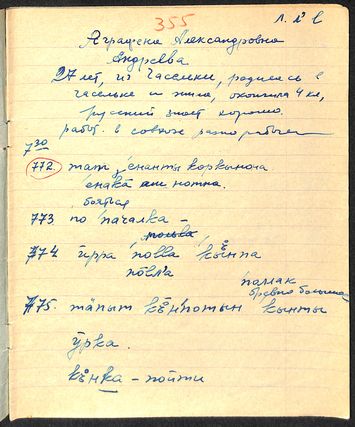 355
Аграфена Александровна
Андреева.
27 лет, из Часельки, родилась в
Часельке и жила, окончила 4 кл,
русский знает хорошо.
работ. в совхозе разнорабочей
7³⁰
772. тат е̄нанты коркыноча
е̄нака̄ нотна.
боятся
773. по пачалка –
774. ӣрра по̄вва къ̊ппа
по̄вл'а
памак
бревно большое
775. тӓпыт къ̊н'потын кынты
ӯрка.
къ̊нка – пойти